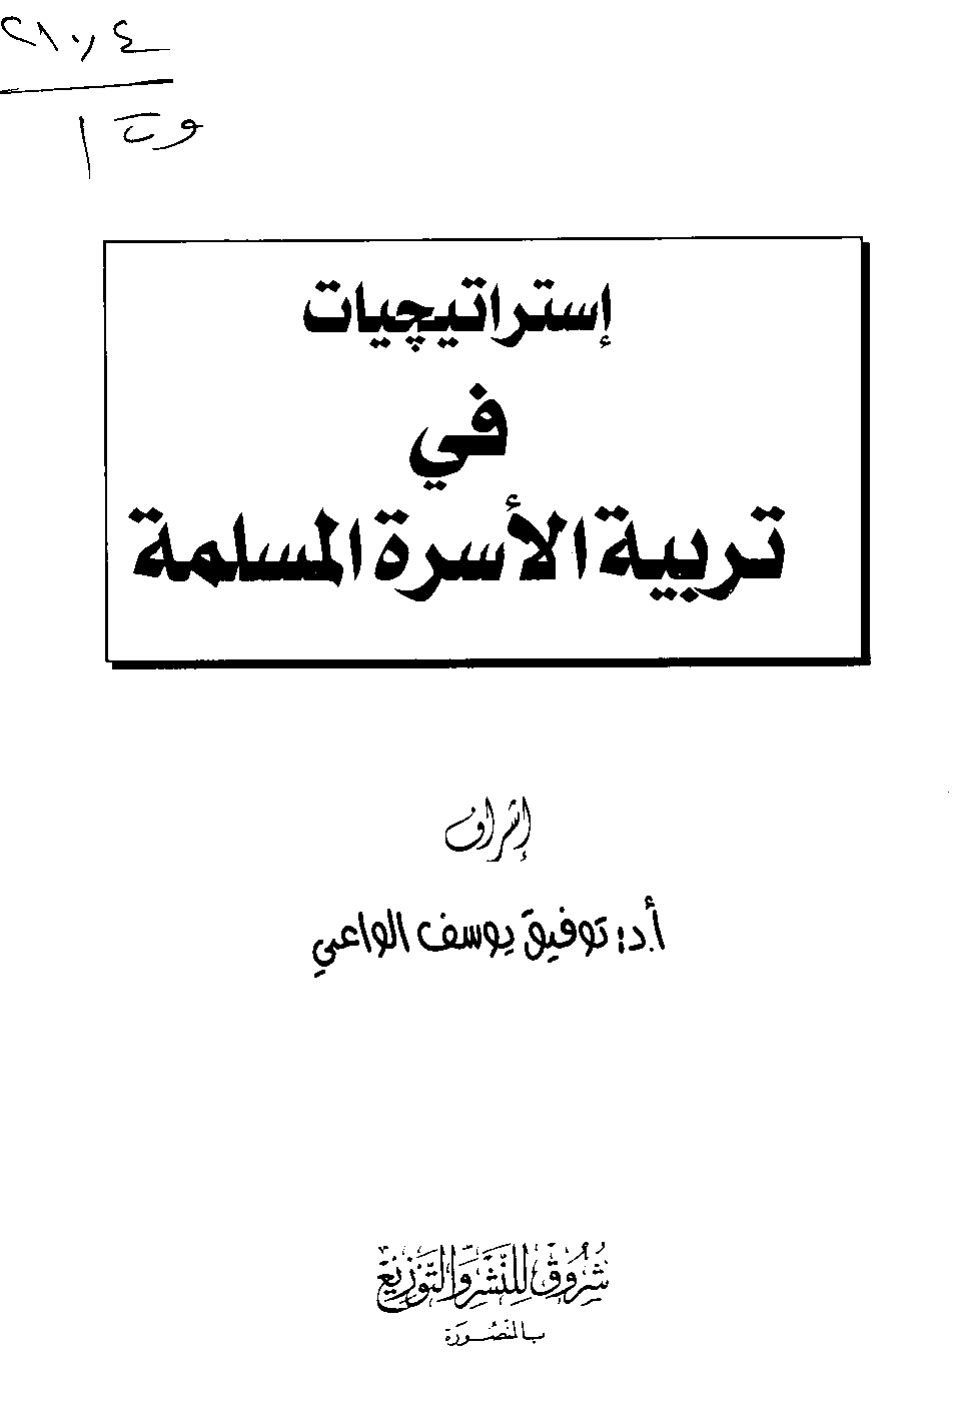 إستراتيچيات
في
تربية الأسرة المسلمة
إشراف
أ.د: توفيق يوسف الواعي
شُرُوق لِلنَّشْرِ وَالتَّوْزِيع
بالمنصُورَة